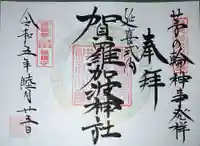 茅の輪神事発祥
奉拝
延喜式内
賀羅加波神社
令和五年陸月廿三日